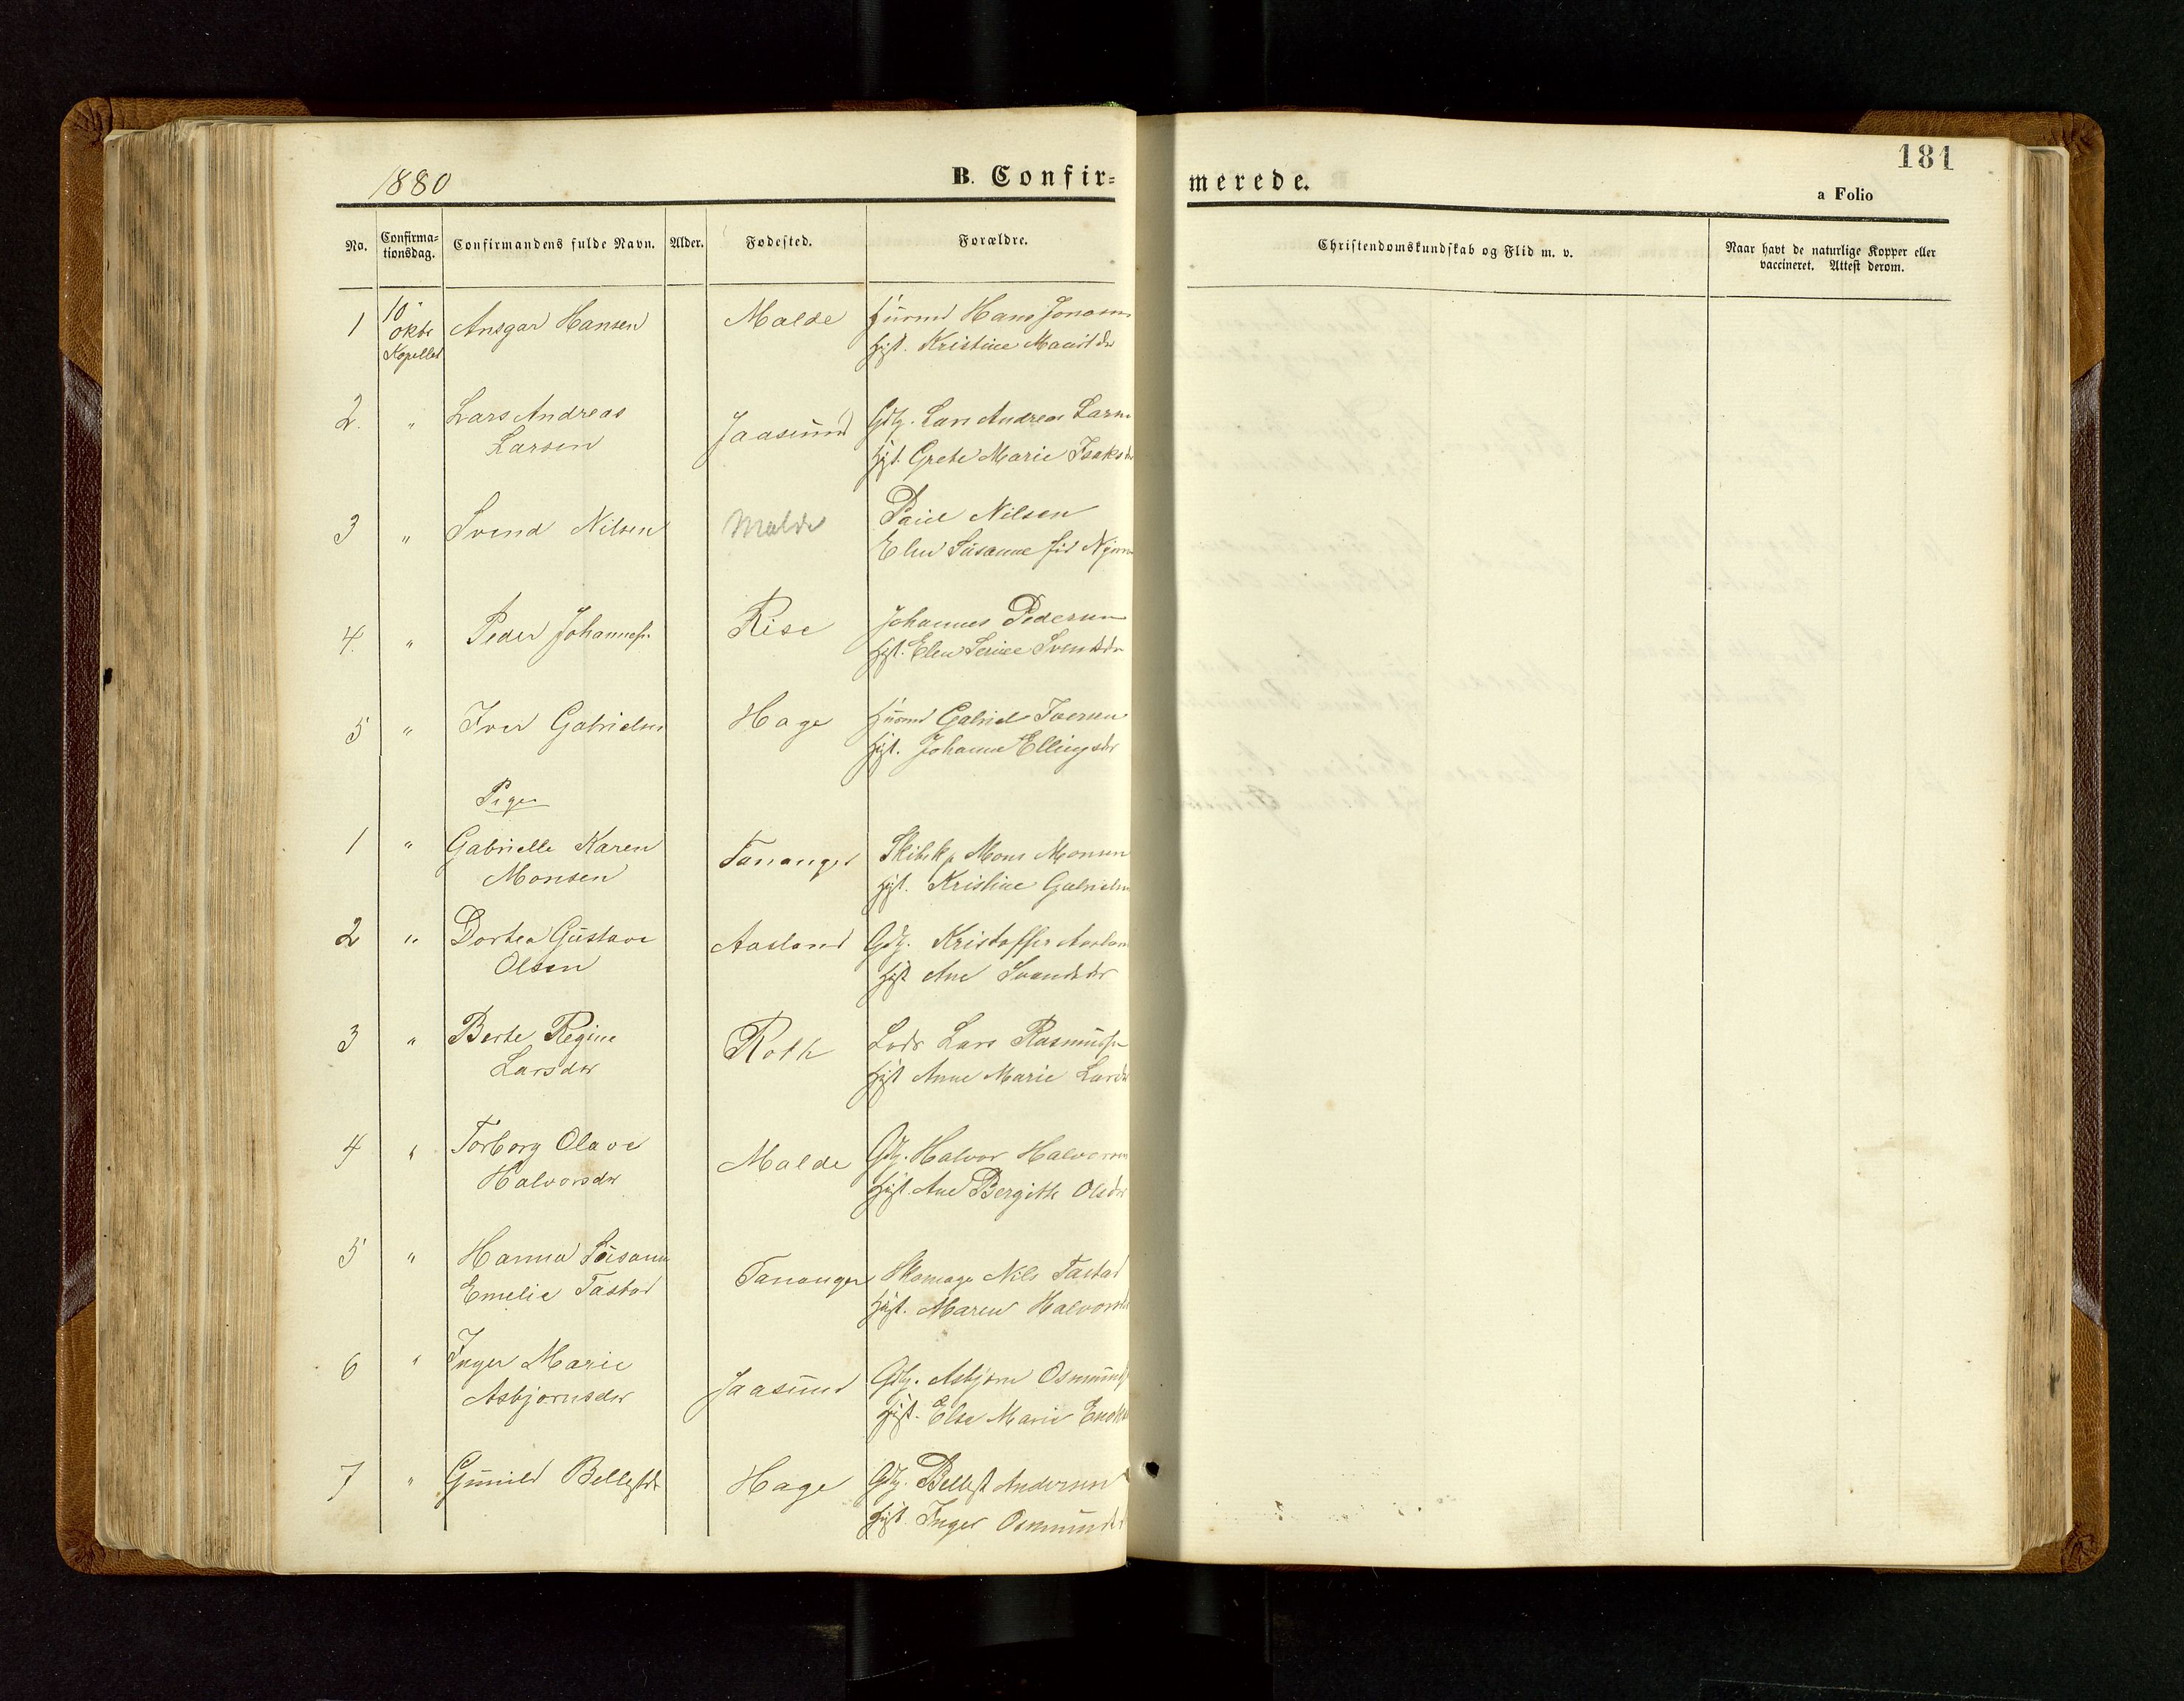 1880
B. Confir-
merede.
181
a Folio
No.
Confirma-
tionsdag.
Confirmandens fulde Navn.
Alder.
Fødested.
Forældre.
Christendomskundskab og Flid m. v.
Naar havt de naturlige Kopper eller
vaccineret. Attest derom.
1
10
Oktbr
Kapellet
Ansgar Hansen
Malde
Huusmd Hans Jonasen
Hst. Kristine
2.
"
Lars Andreas
Larsen
Jaasund
Gdbr. Lars Andreas Larsen
Hst. Grete Marie Isaksdr
3
"
Svend Nilsen
Malde
Nilsen
Elen Susanne
4.
"
Peder Johanness.
Risc
Johannes Pedersen
Hst. Elen Serine Svendsdr
5
"
Iver Gabrielsen
Hage
Huusmd Gabriel Iversen
Hst. Johanne Ellingsdr
Piger
1
"
Gabrielle Karen
Monsen
Tananger
Skibskp Mons Monsen
Hst. Kristine Gabrielsen
2
"
Dortea Gustave
Olsen
Aasland
Gdbr. Kristoffer Aasland
Hst Ane Svendsdr
3
"
Berte Regine
Larsdtr
Roth
Lods Lars Rasmuss.
Hst Anne Marie Larsdr
4
"
Torborg Olave
Halvorsdtr
Malde
Gdbr. Halvor Halvorsen
Hst. Ane Bergitte Olsdr
5
"
Hanna Susanne
Emelie Tastad
Tananger
Skomager Nils Tastad
Hst. Maren Halvorsdr
6
"
Inger Marie
Asbjornsdtr
Jaasund
Gdbr. Asbjørn Osmunds
Hst. Else Marie
7
"
Gunild Bellestdr
Hage
Gdbr. Bellest Andersen
Hst. Inger Osmundsdr